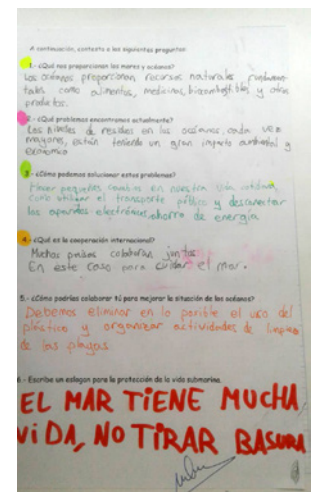 A continuación, contesta a las siguientes preguntas
1.- ¿Qué nos proporcionan los mares y océanos?
Los océanos proporcionan recursos naturales fundamen-
tales como alimentos, medicinas, biocombustibles y otros
productos.
2.- ¿Qué problemas encontramos actualmente?
Los niveles de residuos en los océanos, cada vez
mayores, están teniendo un gran impacto ambiental y
económico
3.- ¿Cómo podemos solucionar estos problemas?
Hacer pequeños cambios en nuestra vida cotidiana,
como utilizar el transporte público y desconectar
los aparatos electrónicos, ahorro de energía
4.- ¿Qué es la cooperación internacional?
Muchos países colaboran juntos.
En este caso para cuidar el mar.
5.- ¿Cómo podrías colaborar tú para mejorar la situación de los océanos?
Debemos eliminar en lo posible el uso del
plástico y organizar actividades de limpieza
de las playas
6.- Escribe un eslogan para la protección de la vida submarina.
EL MAR TIENE MUCHA
ViDA, NO TIRAR BASURA